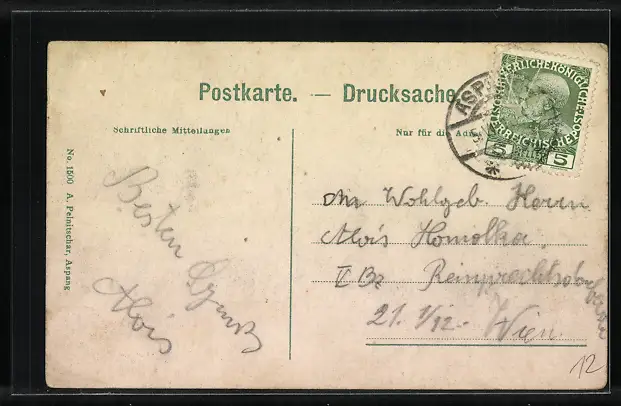 Postkarte. — Drucksache
Schriftliche Mitteilungen
Nur für die Adresse
No. 1500 A. Pelnitschar, Aspang
ASP
KAISERLICHE KÖNIGLICHE
ÖSTERREICHISCHE POST
5 5
Besten Gruß
Alois
An Wohlgeb. Herrn
Alois Homolka
V Bz Reinprechtsdorferstr
21. 1/12 - Wien
12